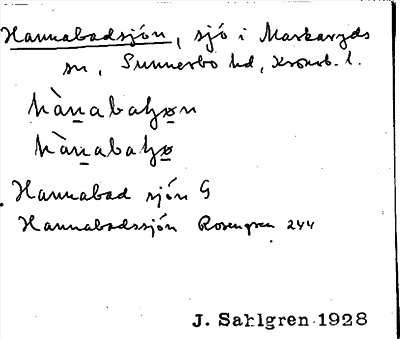 Hannabadsjön, sjö i Markaryds
sn, Sunnerbo hd, Kronob. l.
hànabaꞎøn
hànabaꞎø
Hannabad sjön G
Hannabadssjön Rosengren 244
J. Sahlgren 1928